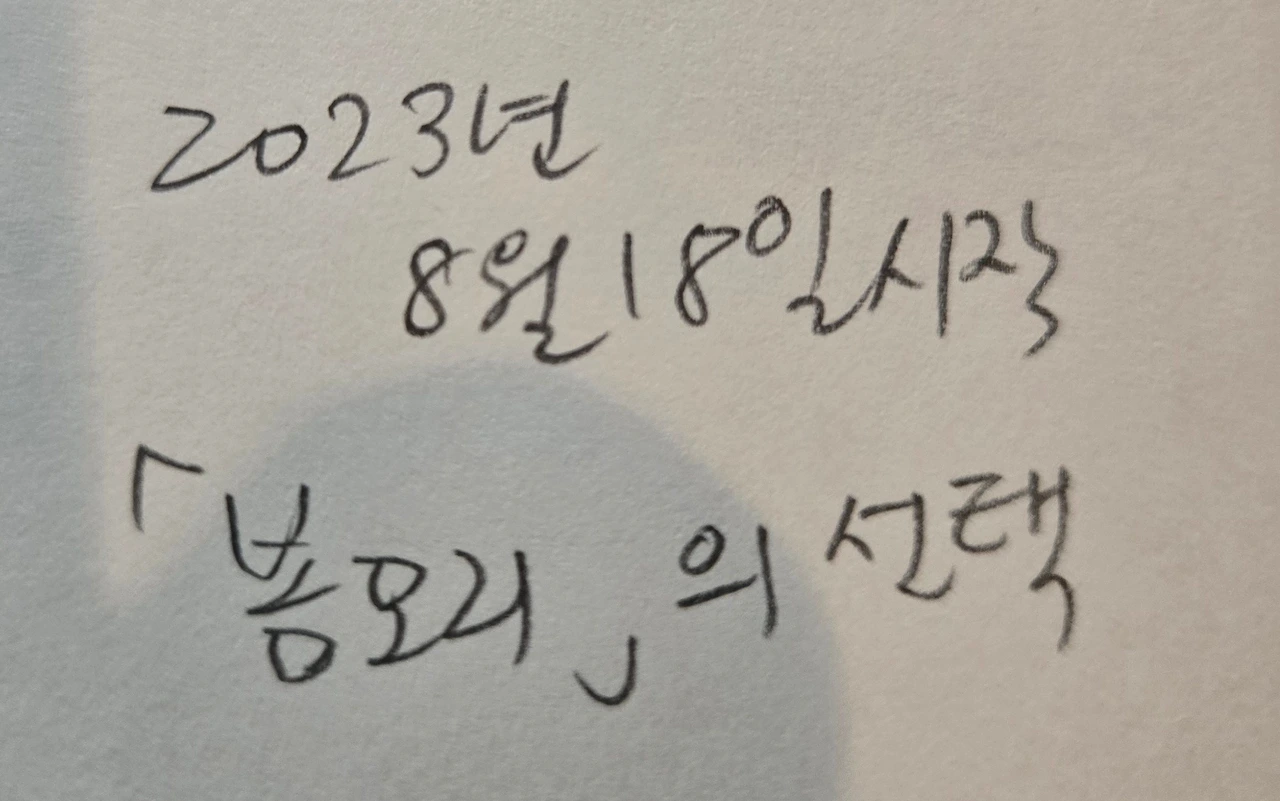 2023년
8월 18일 시작
「봄오리」의 선택